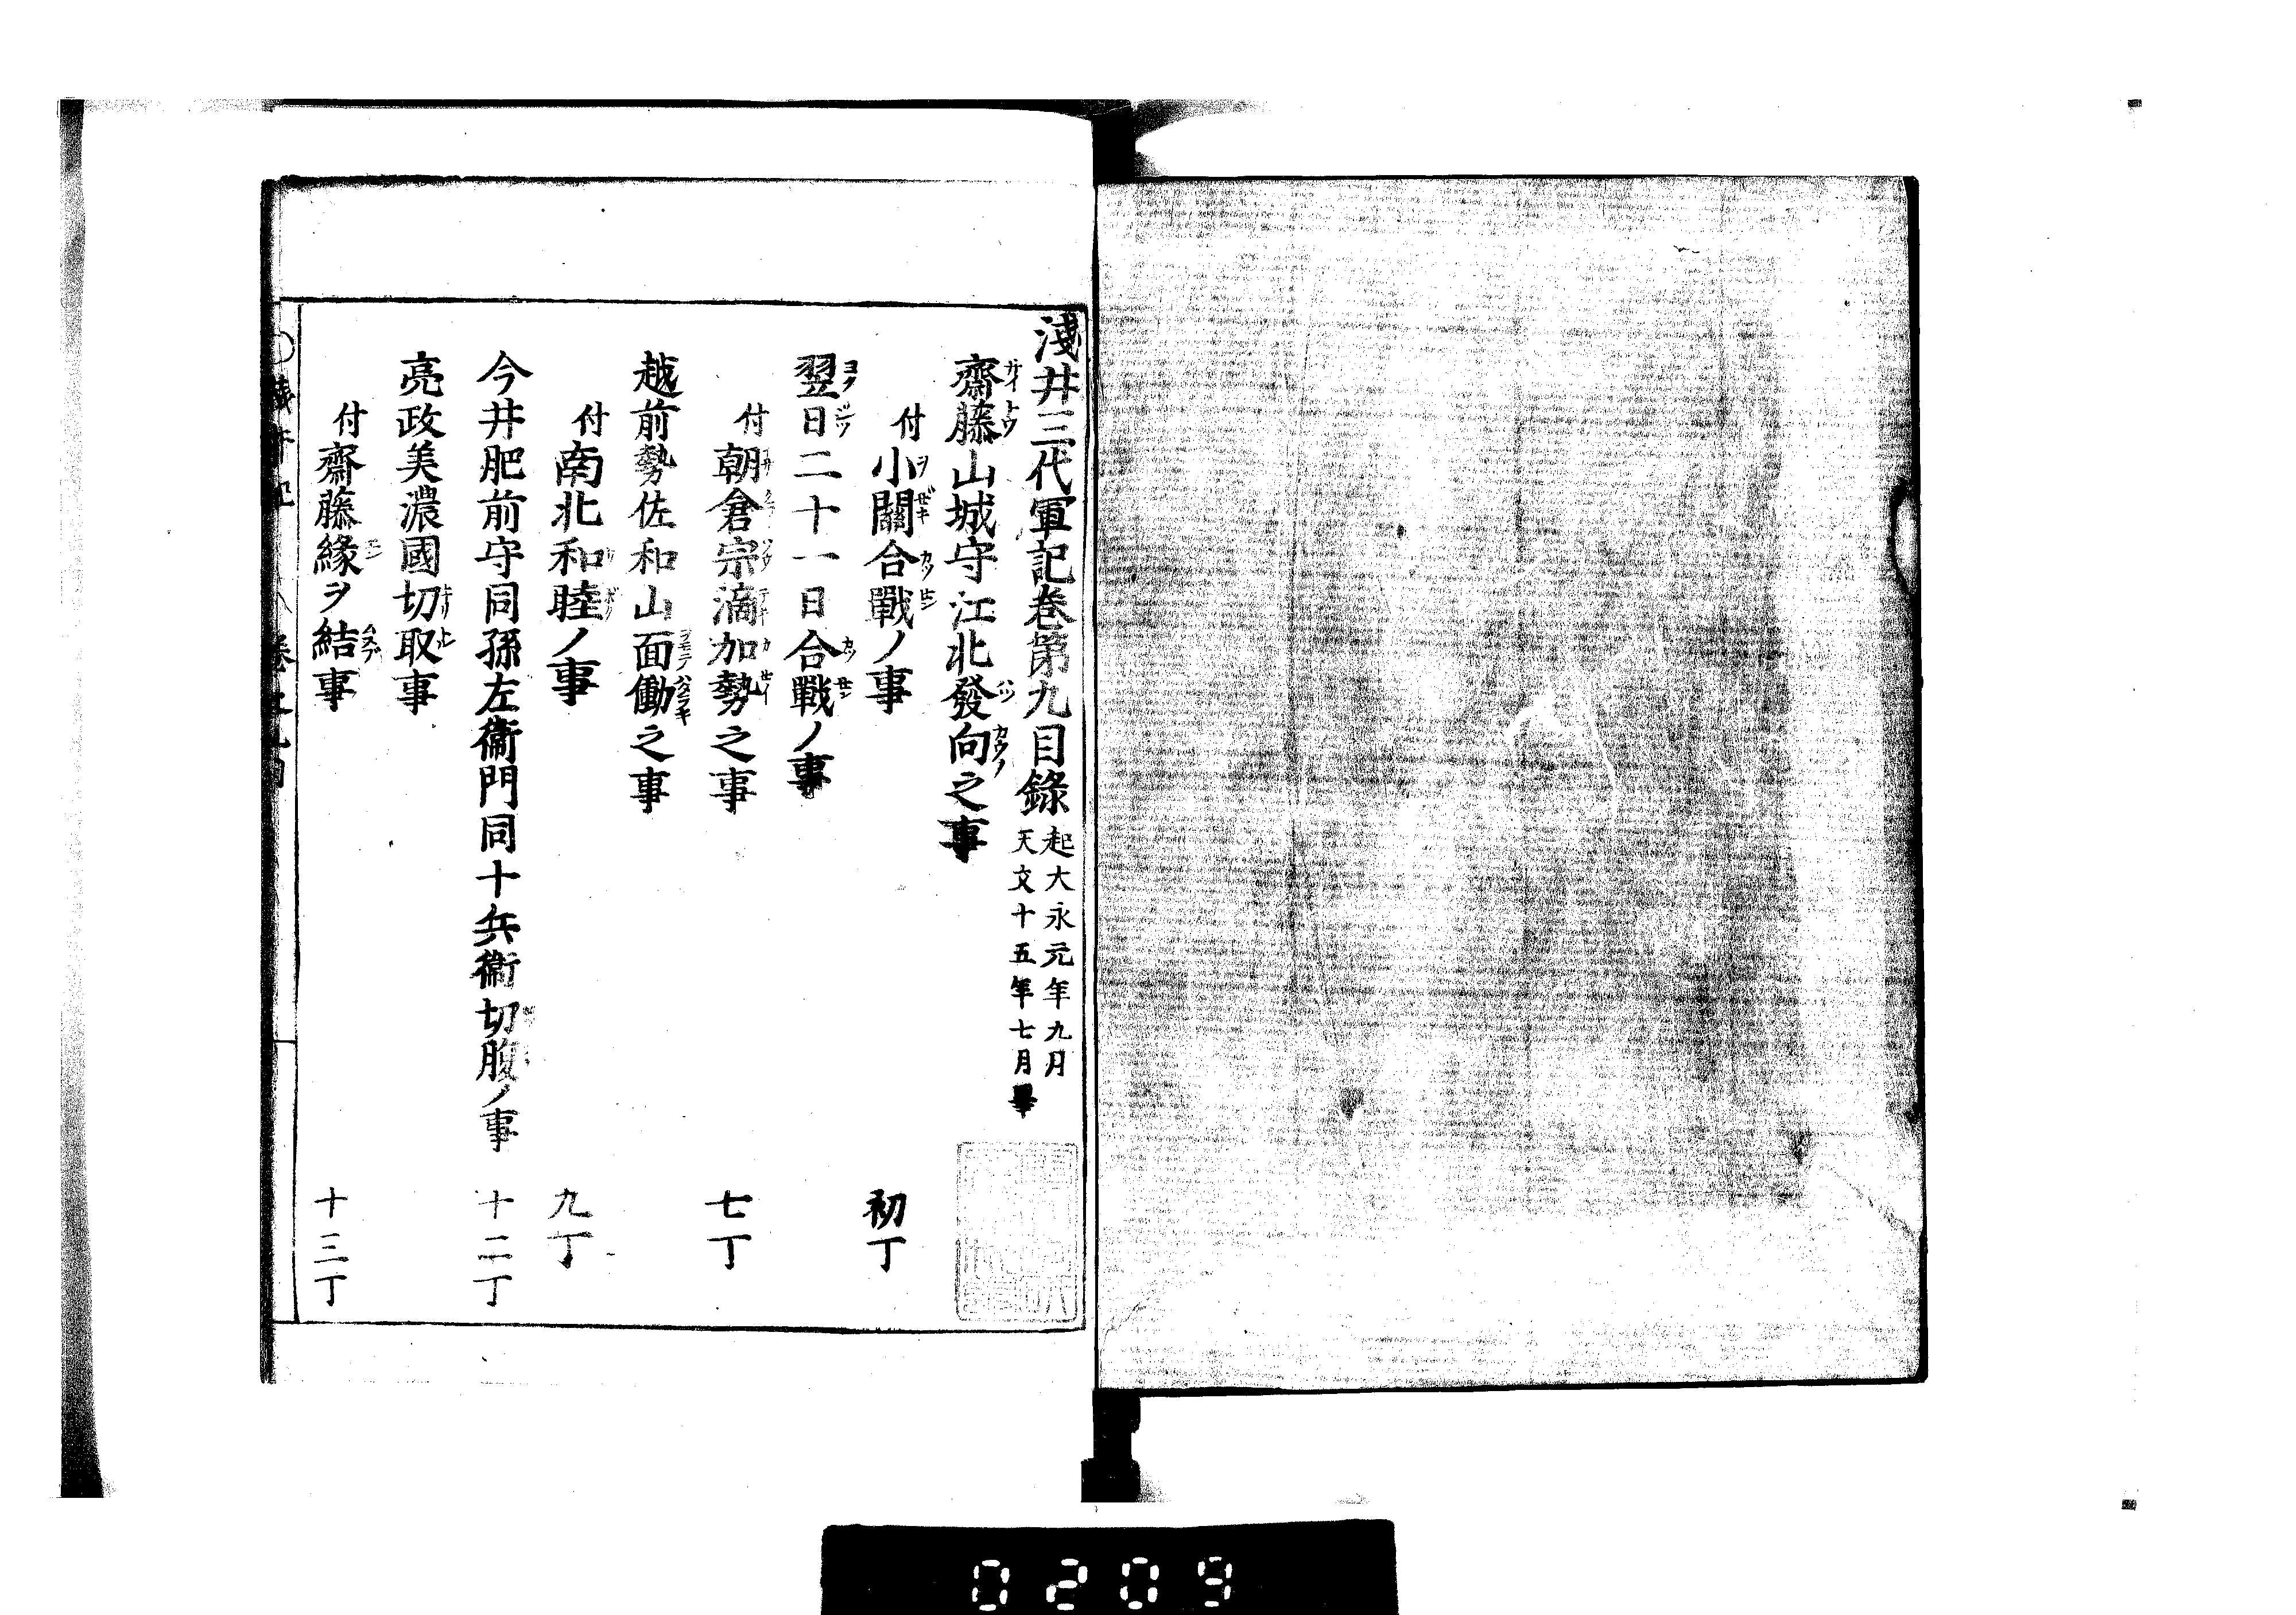 淺井三代軍記卷第九目錄
起大永元年九月
天文十五年七月畢
齋藤山城守江北發向之事
付小關合戰ノ事 初丁
翌日二十一日合戰ノ事
付朝倉宗滴加勢之事 七丁
越前勢佐和山面働之事
付南北和睦ノ事 九丁
今井肥前守同孫左衞門同十兵衞切腹ノ事 十二丁
亮政美濃國切取事
付齋藤緣ヲ結事 十三丁
0209